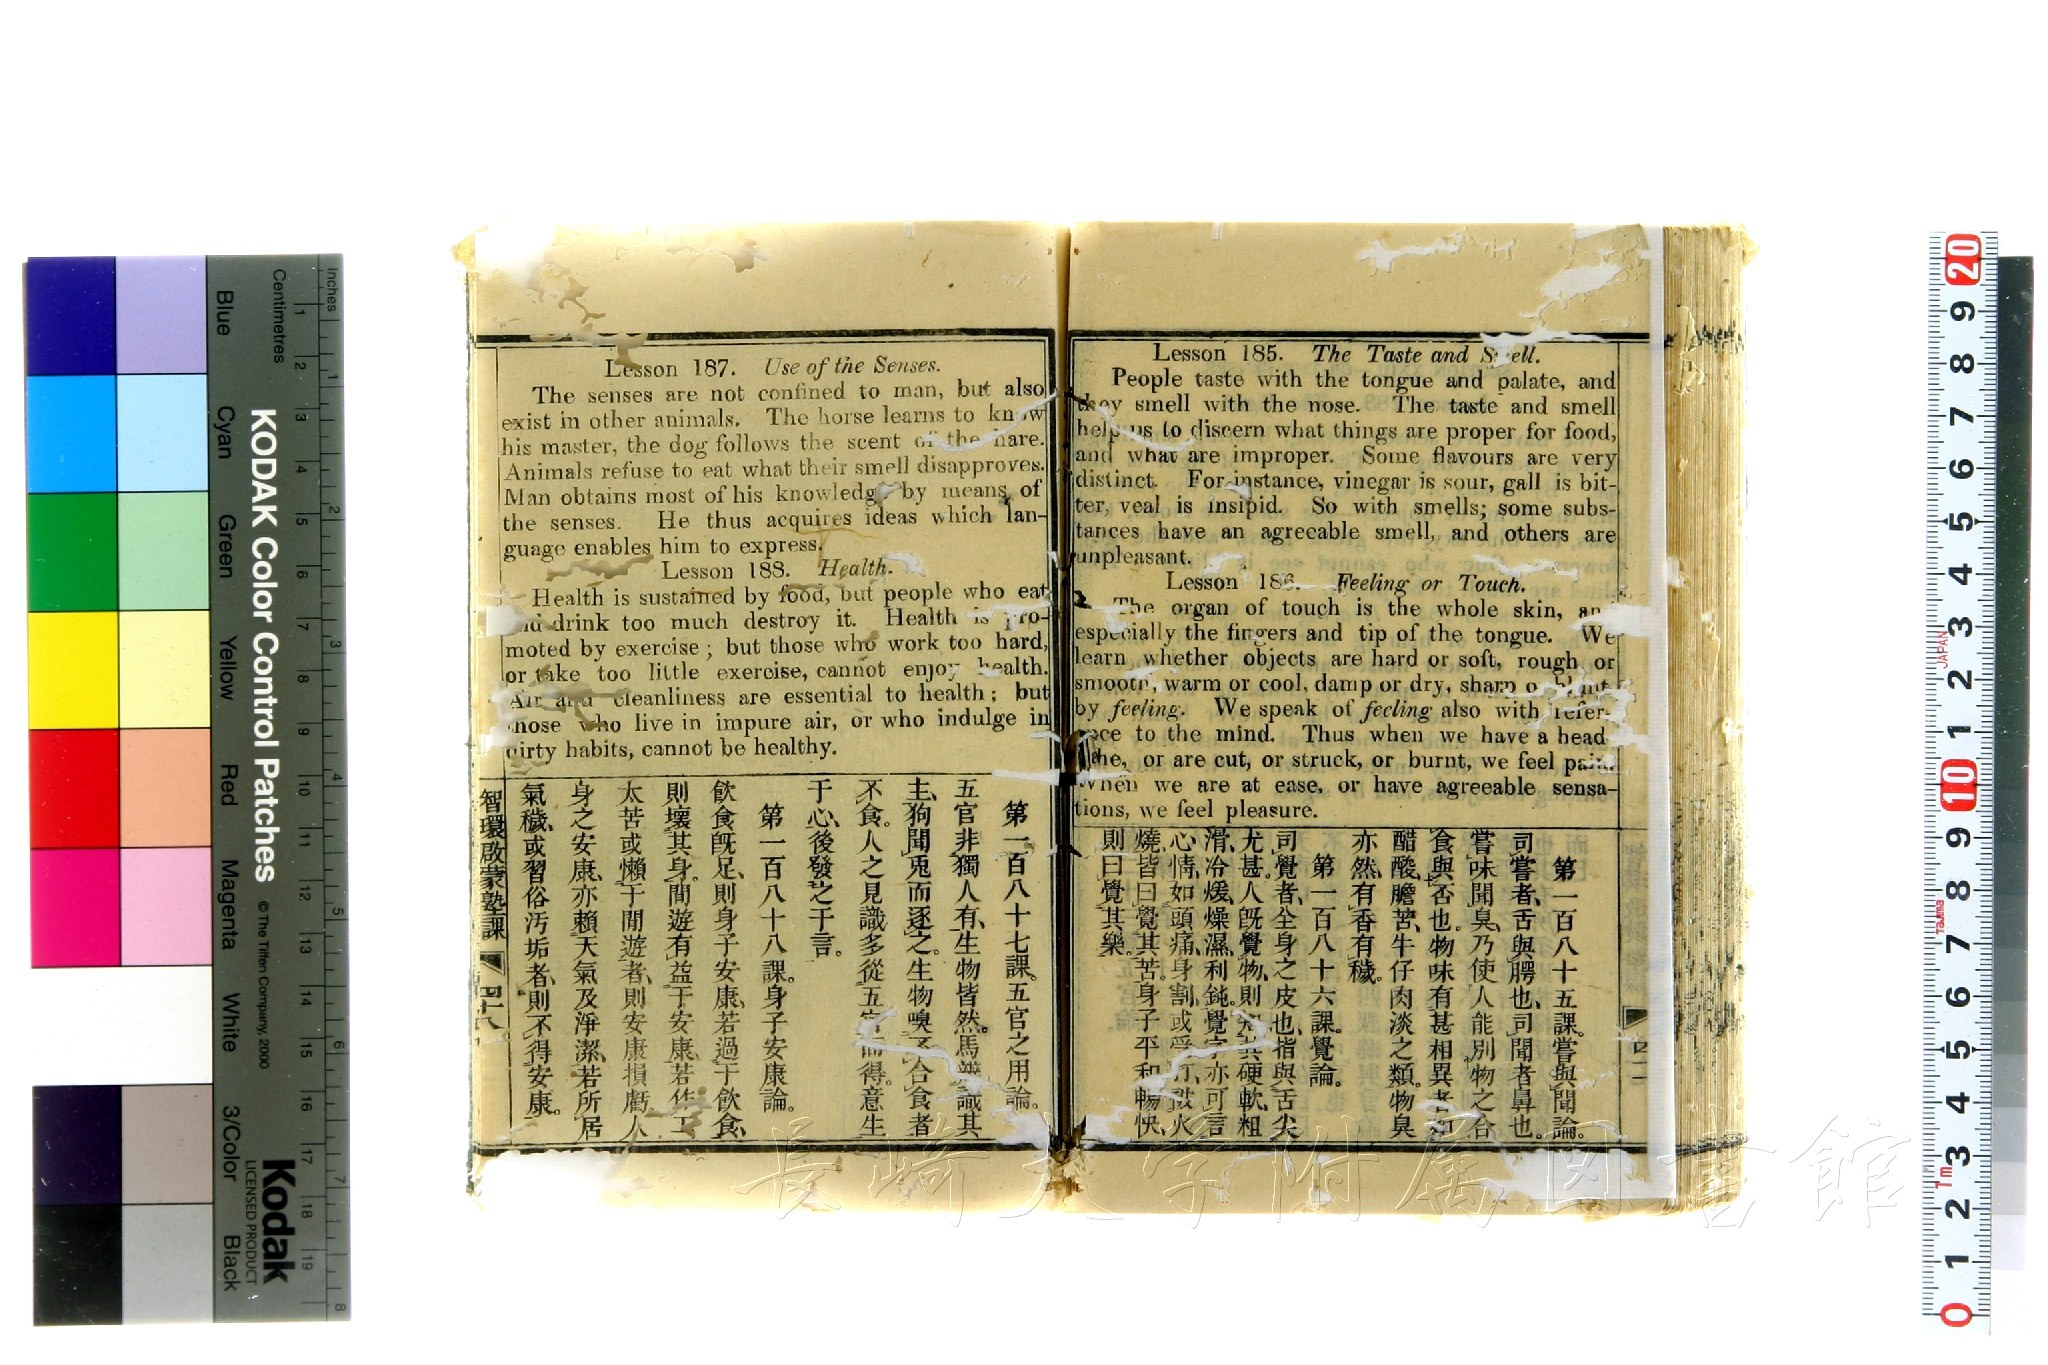 Lesson 187. Use of the Senses.
The senses are not confined to man, but also
exist in other animals. The horse learns to know
his master, the dog follows the scent of the hare.
Animals refuse to eat what their smell disapproves.
Man obtains most of his knowledge by means of
the senses. He thus acquires ideas which lan-
guage enables him to express.
Lesson 188. Health.
Health is sustained by food, but people who eat
and drink too much destroy it. Health is pro-
moted by exercise; but those who work too hard,
or take too little exercise, cannot enjoy health.
Air and cleanliness are essential to health; but
those who live in impure air, or who indulge in
dirty habits, cannot be healthy.
第一百八十七課。五官之用論。
五官非獨人有、生物皆然。馬辨識其
主、狗聞兎而逐之。生物嗅不合食者
不食。人之見識多從五官而得。意生
于心、後發之于言。
第一百八十八課。身子安康論。
飲食旣足、則身子安康、若過于飲食、
則壞其身。間遊有益于安康、若作工
太苦或懶于閒遊者、則安康損。凡人
身之安康、亦賴天氣及淨潔、若所居
氣穢、或習俗汚垢者、則不得安康。
智環啟蒙塾課
四十八
Lesson 185. The Taste and Smell.
People taste with the tongue and palate, and
they smell with the nose. The taste and smell
help us to discern what things are proper for food,
and what are improper. Some flavours are very
distinct. For instance, vinegar is sour, gall is bit-
ter, veal is insipid. So with smells; some subs-
tances have an agreeable smell, and others are
unpleasant.
Lesson 186. Feeling or Touch.
The organ of touch is the whole skin, and
especially the fingers and tip of the tongue. We
learn whether objects are hard or soft, rough or
smooth, warm or cool, damp or dry, sharp or blunt
by feeling. We speak of feeling also with refer-
ence to the mind. Thus when we have a head
ache, or are cut, or struck, or burnt, we feel pain.
When we are at ease, or have agreeable sensa-
tions, we feel pleasure.
第一百八十五課。嘗與聞論。
司嘗者、舌與腭也、司聞者鼻也。
嘗味聞臭、乃使人能別物之合
食與否也。物味有甚相異者、如
醋酸、膽苦、牛仔肉淡之類。物臭
亦然、有香有穢。
第一百八十六課。覺論。
司覺者、全身之皮也、指與舌尖
尤甚。人旣覺物、則知其硬軟、粗
滑、冷煖、燥濕、利鈍。覺字亦可言
心情、如頭痛、身割、或受打、敲火
燒、皆曰覺其苦。身子平和暢快、
則曰覺其樂。
KODAK Color Control Patches
© The Tiffen Company, 2000
Kodak
LICENSED PRODUCT
Inches
Centimetres
Blue
Cyan
Green
Yellow
Red
Magenta
White
3/Color
Black
1 2 3 4 5 6 7 8 9 10 11 12 13 14 15 16 17 18 19
1 2 3 4 5 6 7 8
20
9
8
7
6
5
4
3
2
1
10
9
8
7
6
5
4
3
2
1
0
JAPAN
Tajima
1m
長崎大学附属図書館